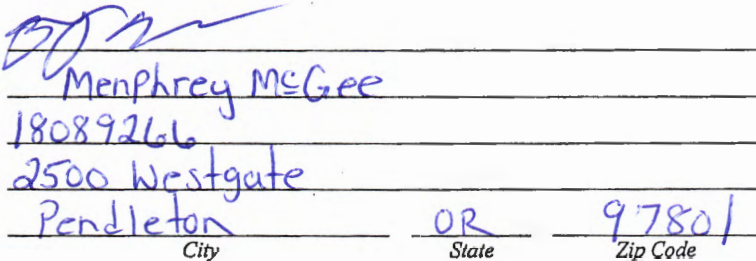 Menphrey McGee
18089266
2500 Westgate
Pendleton OR 97801
City State Zip Code